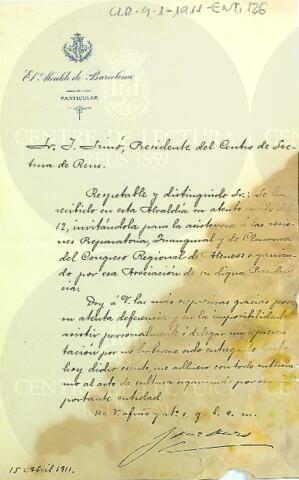 CLR-4-1-1911-ENT, 126
El Alcalde de Barcelona
PARTICULAR
Sr. J. Presidente del Centro de Lec-
tura de Reus.
Respetable y distinguido Sr.: Se ha
recibido en esta Alcaldía su atento
12, invitándola para la asistencia á las sesio-
nes Preparatoria, Inaugural y de Clausura
del Congreso Regional de Ateneos organiza-
do por esa Asociación de su digna Presiden-
cia.
Doy á V. las más expresivas gracias por
su atenta deferencia y en la imposibilidad
asistir personalmente ó delegar mi represen-
tación por no haberme sido entregado hasta
hoy dicho me adhiero con todo entusias-
mo al acto de cultura organizado por esa im-
portante entidad.
De V. afmo. y ato. s. q. b. s. m.
15 Abril 1911.
CENTRE DE LECTURA
REUS 1859